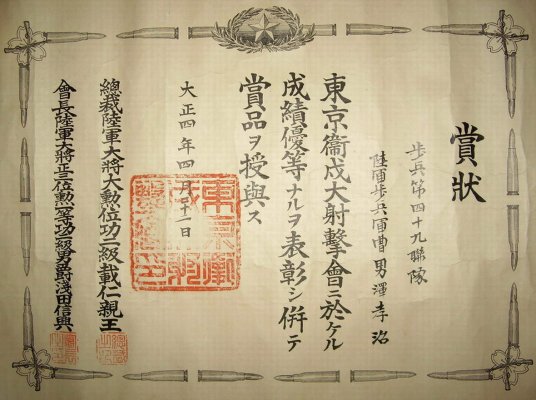 賞狀
步兵第四十九聯隊
陸軍步兵軍曹 男澤孝治
東京衞戍大射擊會ニ於ケル
成績優等ナルヲ表彰シ併テ
賞品ヲ授與ス
大正四年四月二十一日
總裁陸軍大將大勲位功二級載仁親王
會長陸軍大將正三位勲一等功二級男爵淺田信興